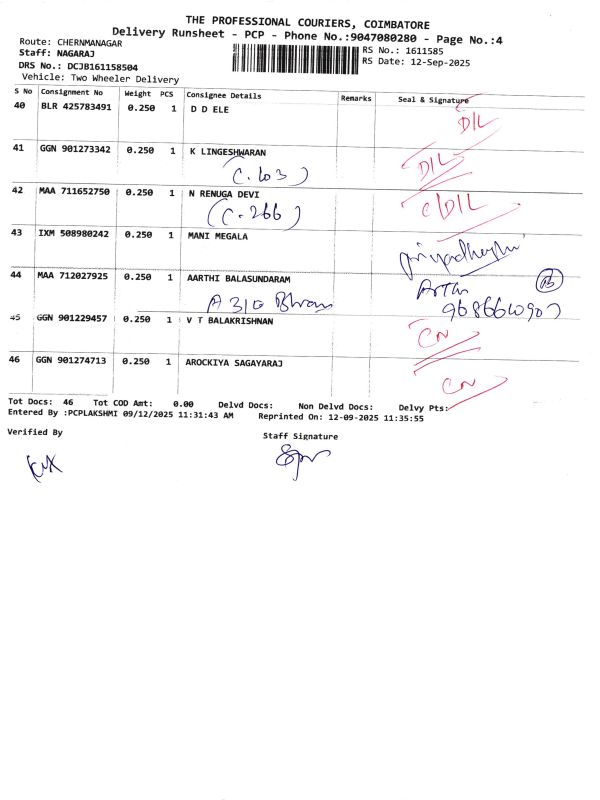 THE PROFESSIONAL COURIERS, COIMBATORE
Delivery Runsheet - PCP - Phone No.:9047080280 - Page No.:4
Route: CHERNMANAGAR
RS No.: 1611585
Staff: NAGARAJ
RS Date: 12-Sep-2025
DRS No.: DCJB161158504
Vehicle: Two Wheeler Delivery
S No Consignment No Weight PCS Consignee Details Remarks Seal & Signature
40 BLR 425783491 0.250 1 D D ELE
D/L
41 GGN 901273342 0.250 1 K LINGESHWARAN
D/L
(C. 103)
42 MAA 711652750 0.250 1 N RENUGA DEVI
C/D/L
(C. 266)
43 IXM 508980242 0.250 1 MANI MEGALA
44 MAA 712027925 0.250 1 AARTHI BALASUNDARAM
A 310
45 GGN 901229457 0.250 1 V T BALAKRISHNAN
CN
46 GGN 901274713 0.250 1 AROCKIYA SAGAYARAJ
CN
Tot Docs: 46 Tot COD Amt: 0.00 Delvd Docs: Non Delvd Docs: Delvy Pts:
Entered By :PCPLAKSHMI 09/12/2025 11:31:43 AM Reprinted On: 12-09-2025 11:35:55
Verified By
Staff Signature